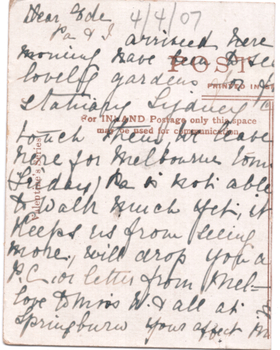 Dear Ede 4/4/07
Pa & I arrived here
morning have been to see
lovely gardens
POST
PRINTED IN
statuary Sydney
For INLAND Postage only this space
may be used for communication.
touch them, we leave
here for Melbourne tom
(Friday) Pa is not able
to walk much yet, it
keeps us from seeing
more, will drop you a
P.C. or letter from Mel-
love to Miss W. & all at
Springburn yours affect
Valentine's Series